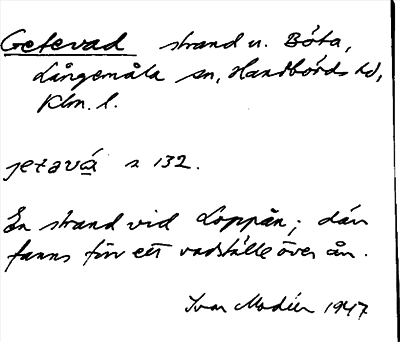 Getevad strand u. Böta,
Långemåla sn, Handbörds hd,
Klm. l.
jetavá s 132.
En strand vid Loppån; där
fanns för ett vadställe över ån.
Ivar Modéer 1947